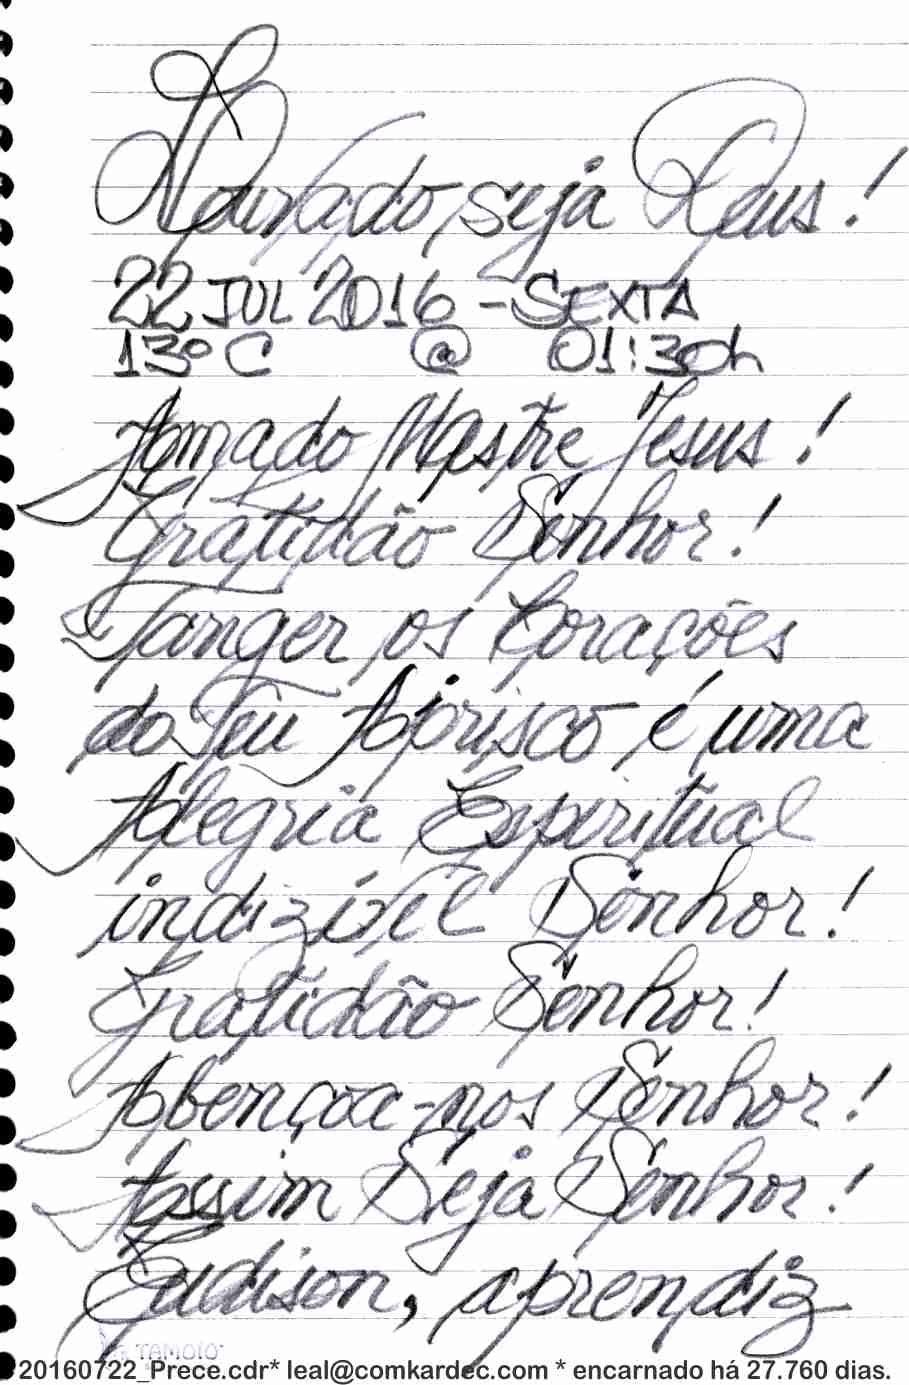 Louvado seja Deus!
22 JUL 2016 - SEXTA
13º C @ 01:30h
Amado Mestre Jesus!
Gratidão Senhor!
Tanger os Corações
do Teu Aprisco é uma
Alegria Espiritual
indizível Senhor!
Gratidão Senhor!
Abençoe-nos Senhor!
Assim Seja Senhor!
Eudison, aprendiz
TAMOIO
20160722_Prece.cdr* leal@comkardec.com * encarnado há 27.760 dias.